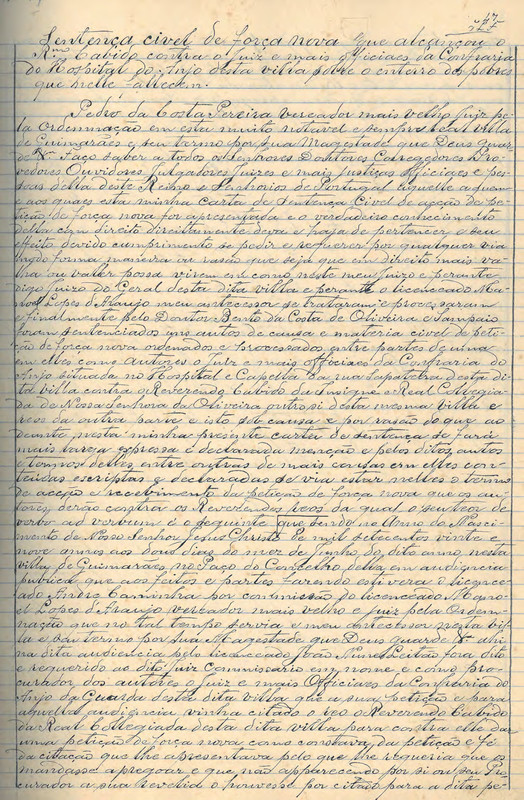 Sentença civel de força nova que alcançou o
Rmo Cabido contra o Juiz e mais officiaes da Confraria
do Hospital do Anjo desta villa sobre o enterro dos pobres
que nelle fallecem.
Pedro da Costa Pereira vereador mais velho Juiz pe-
la Ordennação em esta muito notavel e sempre leal villa
de Guimarães e seu termo por sua Magestade que Deus guar-
de &a Faço saber a todos os senhores Doutores Corregedores Pro-
vedores Ouvidores Julgadores Juizes e mais justiças officiaes e pes-
soas della deste Reino e Senhorios de Portugal aquelle a quem
e aos quaes esta minha carta de Sentença Civel de acção de pe-
tição de força nova for apresentada e o verdadeiro conhecimento
della com direito direitamente deva e haja de pertencer e seu
effeito devido cumprimento se pedir e requerer por qualquer via
modo forma maneira ou rasão que seja que em direito mais va-
lha ou valer possa virem em como neste meu Juizo e perante
digo Juizo do Geral desta dita villa e perante o licenceado Ma-
noel Lopes d'Araujo meu antecessor se trataram e processaram
e finalmente pelo Doutor Bento da Costa de Oliveira e Sampaio
foram sentenciados uns autos de causa e materia civel de peti-
ção de força nova ordenados e processados entre partes de uma
em elles como Authores o Juiz e mais officiaes da Confraria do
Anjo situada no Hospital e Capella da rua Sapateira desta di-
ta villa contra o Reverendo Cabido da Insigne e Real Collegia-
da de Nossa Senhora da Oliveira outro si desta mesma villa e
reos da outra parte e isto sob causa e por rasão do que ao
deante nesta minha presente carta de sentença se fará
mais larga expressa e declarada menção e pelos ditos autos
e termos delles entre outras de mais cousas em elles con-
teudas escriptas e declaradas se via estar nelles o termo
de acção e recebimento da petição de força nova que os au-
tores derão contra os Reverendos reos da qual o seu teor de
verbo ad verbum é o seguinte que sendo no Anno do Nasci-
mento de Nosso Senhor Jesus Christo de mil setecentos vinte e
nove annos aos dous dias do mez de Junho do dito anno nesta
villa de Guimarães no Paço do Concelho della em audiencia
publica que aos feitos e partes fazendo estivera o licence-
ado André Caminha por commissão do licenceado Mano-
el Lopes d'Araujo vereador mais velho e Juiz pela Ordem-
nação que no tal tempo servia e meu antecessor nesta vil-
la e seu termo por sua Magestade que Deus guarde &a ahi
na dita audiencia pelo licenceado João Nunes Leitão fora dito
e requerido ao dito Juiz Commissario em nome e como pro-
curador dos autores o Juiz e mais officiaes da Confraria do
Anjo da Guarda desta dita villa que a sua petição e para
aquella audiencia vinha citado o reo o Reverendo Cabido
da Real Collegiada desta dita villa para contra elle dar
uma petição de força nova como constava da petição e fé
da citação que lhe apresentava pelo que lhe requeria que os
mandasse apregoar e que não apparecendo por si ou seu Pro-
curador a sua revelia o houvesse por citado para a dita pe-